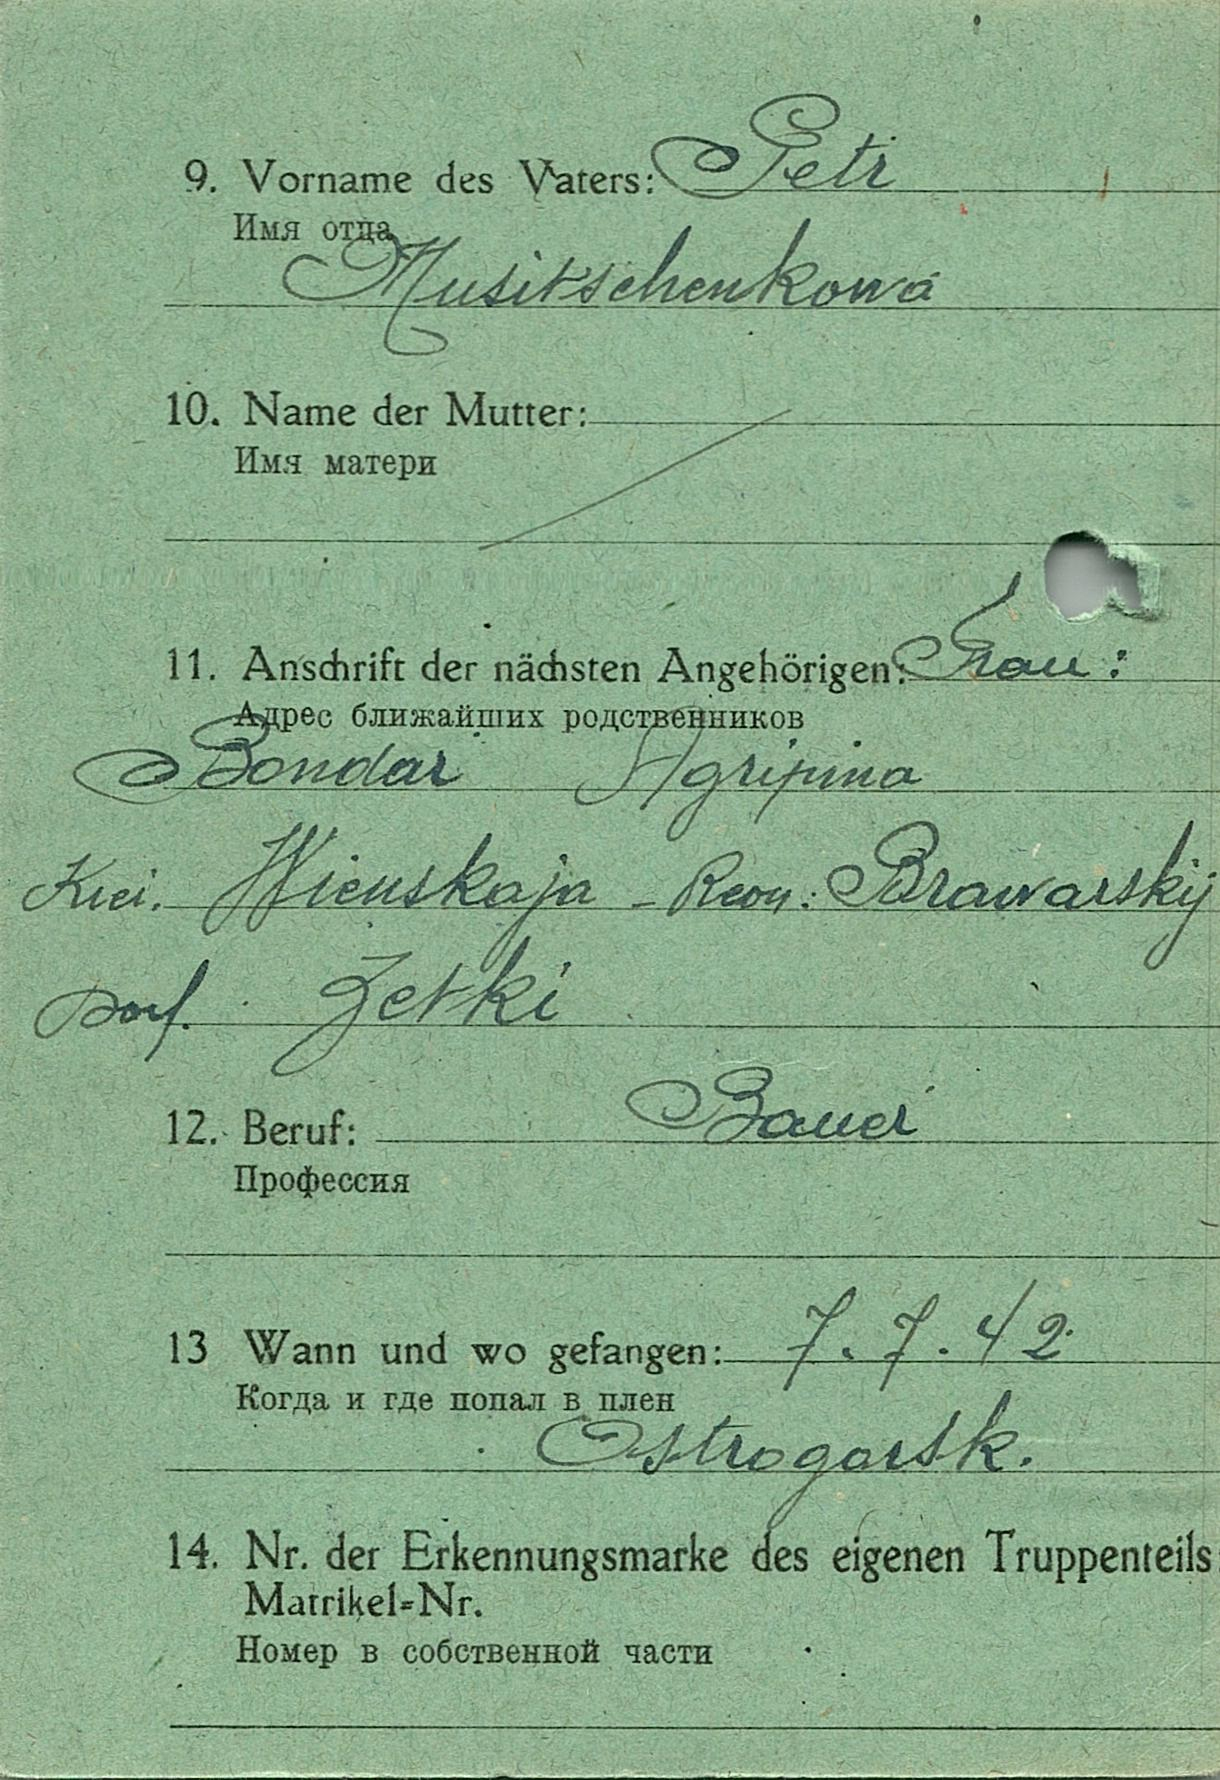 9. Vorname des Vaters: Petr
Имя отца
Musitschenkowa
10. Name der Mutter:
Имя матери
11. Anschrift der nächsten Angehörigen: Frau:
Адрес ближайших родственников
Bondar Agripina
Krei. Wienskaja - Reon: Brawarskij
Dorf. Zetki
12. Beruf: Bauer
Профессия
13 Wann und wo gefangen: 7.7.42
Когда и где попал в плен
Ostrogorsk.
14. Nr. der Erkennungsmarke des eigenen Truppenteils:
Matrikel-Nr.
Номер в собственной части